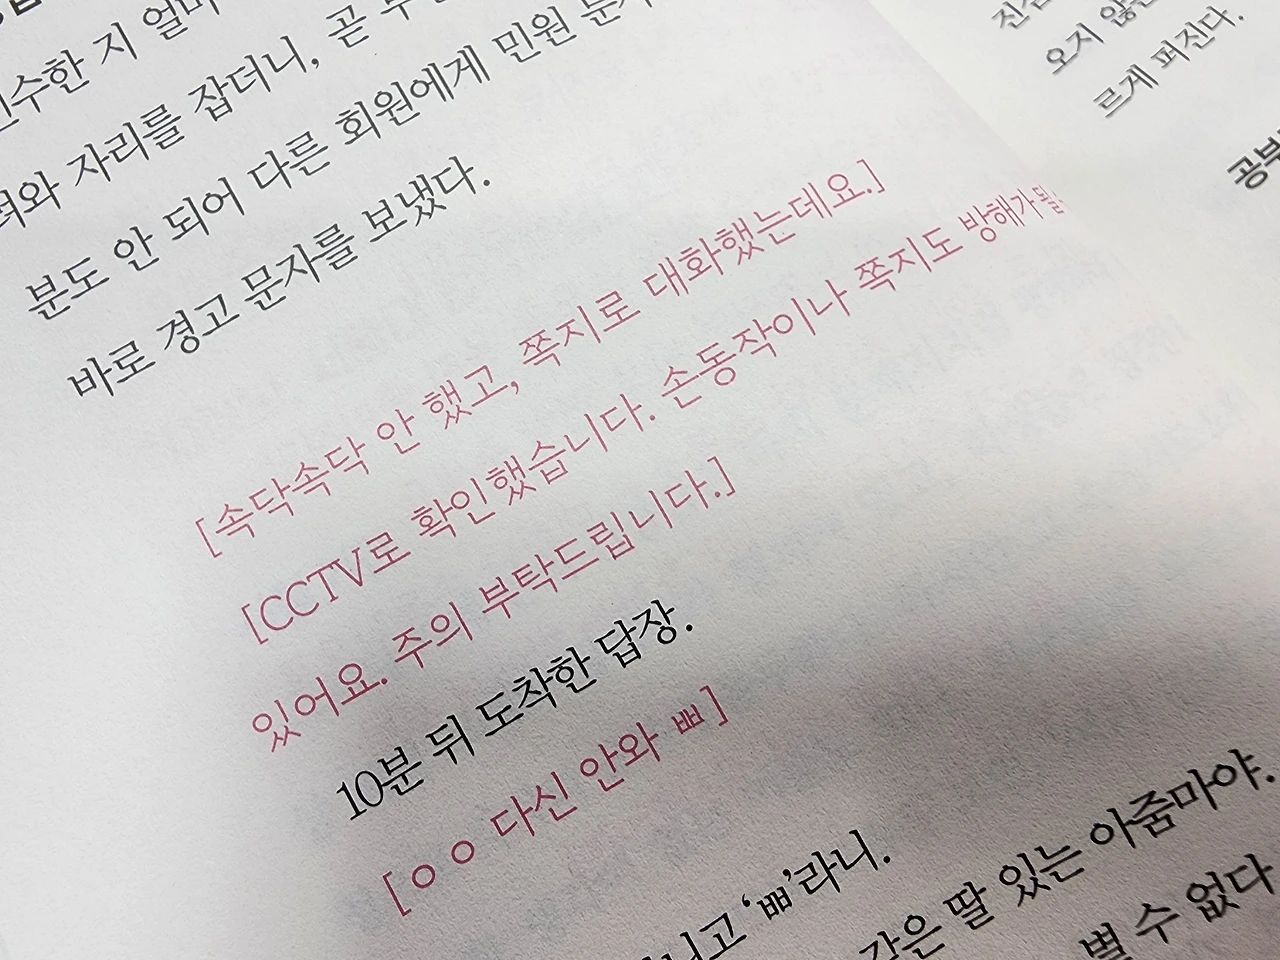 수한 지 얼마
자리를 잡더니, 곧
분도 안 되어 다른 회원에게 민원
바로 경고 문자를 보냈다.
[속닥속닥 안 했고, 쪽지로 대화했는데요.]
[CCTV로 확인했습니다. 손동작이나 쪽지도 방해가 될
있어요. 주의 부탁드립니다.]
10분 뒤 도착한 답장.
[ㅇㅇ 다신 안와 ㅃ]
‘ㅃ’라니.
같은 딸 있는 아줌마야.
별 수 없다
오지 않
르게 퍼진다.
공부